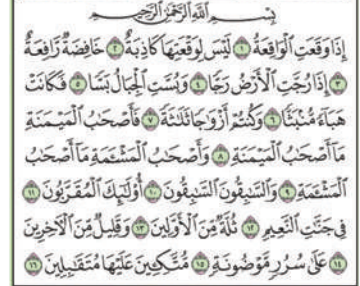 بِسْمِ اللَّهِ الرَّحْمَٰنِ الرَّحِيمِ
إِذَا وَقَعَتِ الْوَاقِعَةُ ١ لَيْسَ لِوَقْعَتِهَا كَاذِبَةٌ ٢ خَافِضَةٌ رَّافِعَةٌ
٣ إِذَا رُجَّتِ الْأَرْضُ رَجًّا ٤ وَبُسَّتِ الْجِبَالُ بَسًّا ٥ فَكَانَتْ
هَبَاءً مُّنْبَثًّا ٦ وَكُنْتُمْ أَزْوَاجًا ثَلَاثَةً ٧ فَأَصْحَابُ الْمَيْمَنَةِ
مَا أَصْحَابُ الْمَيْمَنَةِ ٨ وَأَصْحَابُ الْمَشْئَمَةِ مَا أَصْحَابُ
الْمَشْئَمَةِ ٩ وَالسَّابِقُونَ السَّابِقُونَ ١٠ أُولَٰئِكَ الْمُقَرَّبُونَ ١١
فِي جَنَّاتِ النَّعِيمِ ١٢ ثُلَّةٌ مِّنَ الْأَوَّلِينَ ١٣ وَقَلِيلٌ مِّنَ الْآخِرِينَ
١٤ عَلَىٰ سُرُرٍ مَّوْضُونَةٍ ١٥ مُّتَّكِئِينَ عَلَيْهَا مُتَقَابِلِينَ ١٦